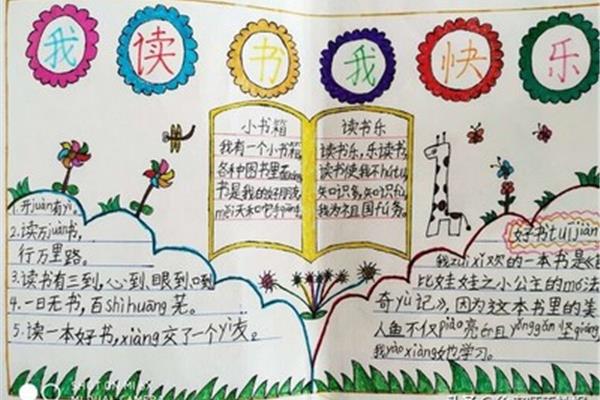 我读书我快乐
小书箱
我有一个小书箱,
各种图书里面
书是我的好朋友,
měi天和它
读书乐
读书乐,乐读书,
读书使我不hútu,
知识多,知识
我为祖国fú务。
1.开juàn有yì。
2.读万juàn书,
行万里路。
3.读书有三到,心到、眼到、口到
4.一日无书,百shì huāng芜。
5.读一本好书,xiàng交了一个yì友。
好书tuī jiàn
我zuì xǐ欢的一本书是《
比娃娃之小公主的mó法
奇yù记》,因为这本书里的美
人鱼不仅piào亮而且yǒng gǎn坚qiáng
我yào xiàng她学习。
SHOT ON MI
MI DUAL CAMERA